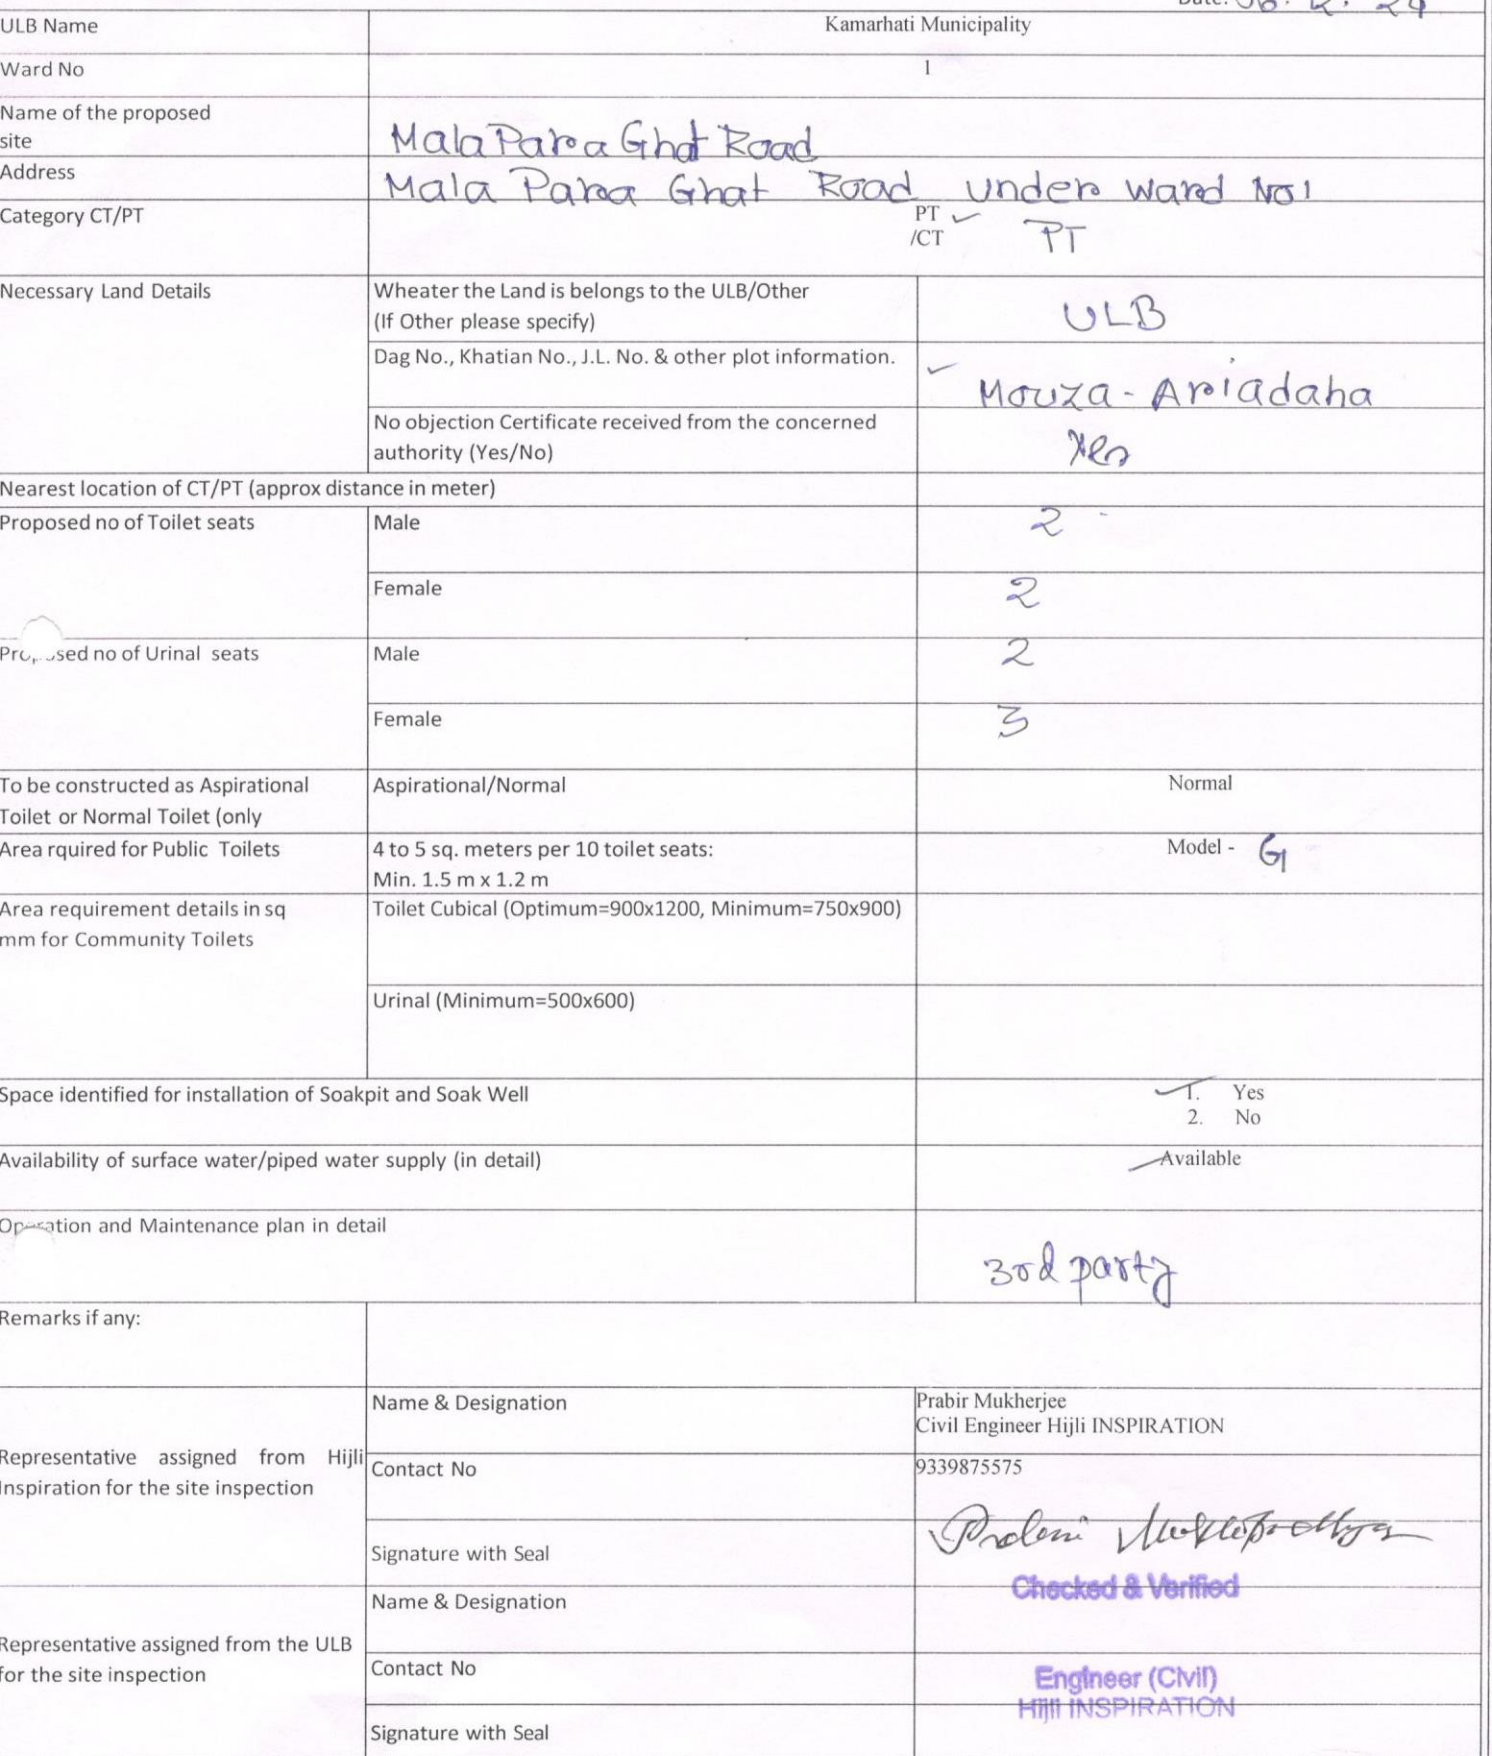 ULB Name Kamarhati Municipality
Ward No 1
Name of the proposed
site Mala Para Ghat Road
Address Mala Para Ghat Road under ward No 1
Category CT/PT PT
/CT PT
Necessary Land Details Wheater the Land is belongs to the ULB/Other
(If Other please specify) ULB
Dag No., Khatian No., J.L. No. & other plot information.
Mouza - Ariadaha
No objection Certificate received from the concerned
authority (Yes/No) Yes
Nearest location of CT/PT (approx distance in meter)
Proposed no of Toilet seats Male 2
Female 2
Proposed no of Urinal seats Male 2
Female 3
To be constructed as Aspirational Aspirational/Normal Normal
Toilet or Normal Toilet (only
Area rquired for Public Toilets 4 to 5 sq. meters per 10 toilet seats: Model - G
Min. 1.5 m x 1.2 m
Area requirement details in sq Toilet Cubical (Optimum=900x1200, Minimum=750x900)
mm for Community Toilets
Urinal (Minimum=500x600)
Space identified for installation of Soakpit and Soak Well 1. Yes
2. No
Availability of surface water/piped water supply (in detail) Available
Operation and Maintenance plan in detail
3rd party
Remarks if any:
Name & Designation Prabir Mukherjee
Civil Engineer Hijli INSPIRATION
Representative assigned from Hijli Contact No 9339875575
Inspiration for the site inspection
Signature with Seal
Checked & Verified
Name & Designation
Representative assigned from the ULB
for the site inspection Contact No
Engineer (Civil)
Hijli INSPIRATION
Signature with Seal